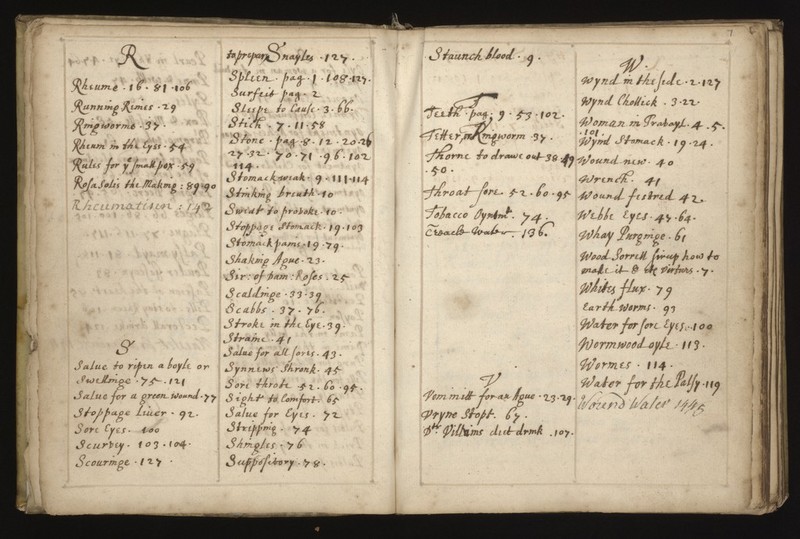 R
Rheume · 16 · 81 · 106
Running Reines · 29
Ringworme · 37 ·
Rheum in the Eyes · 54
Rules for ye small pox · 59
Rosa Solis the Making : 89 · 90
Rheumatism : 142
S
Salue to ripen a boyle or
Swellinge · 75 · 121
Salue for a green wound · 77
Stoppage Liuer · 92 ·
Sore Eyes · 100
Scurvey · 103 · 104 ·
Scouringe · 127 ·
to prepare Snayles · 127 ·
Spleen · pag · 1 · 108 · 127 ·
Surfeit pag · 2
Sleepe to Cause · 3 · 66 ·
Stich · 7 · 11 · 58
Stone · pag · 8 · 12 · 20 · 26
27 · 32 · 70 · 71 · 96 · 102
114 ·
Stomack weak · 9 · 111 · 114
Stinking breath · 10
Sweat to provoke · 10 ·
Stoppage Stomack · 19 · 103
Stomack paine · 19 · 79 ·
Shaking Ague · 23 ·
Sir : of dam : Roses · 25
Scaldinge · 33 · 39
Scabbs · 37 · 76 ·
Stroke in the Eye · 39 ·
Straine · 41
Salue for all sores · 43 ·
Synnews Shronk · 45
Sore throte · 52 · 60 · 95 ·
Sight to Comfort · 65
Salue for Eyes · 72
Stripping · 74
Shingles · 76
Suppository · 78 ·
Staunch blood · 9 ·
T
Teeth · pag · 9 · 53 · 102 ·
Tetter or Ringworm · 37 ·
Thorne to drawe out · 38 · 49
· 50 ·
Throat sore · 52 · 60 · 95
Tobacco Oyntmt · 74 ·
Treacle Water · 136 ·
V
Vommitt for an Ague · 23 · 29 ·
Vryne Stopt · 67 ·
Dtr Villians diet drink · 107 ·
7
W ·
Wynd in the side · 2 · 127
Wynd Chollick · 3 · 22 ·
Woman in Trabayl · 4 · 5 ·
101
Wynd Stomack · 19 · 24 ·
Wound new · 40
Wrench · 41
Wound festred · 42 ·
Webbe Eyes · 47 · 64 ·
Whay Purginge · 61
Wood Sorrell sirup how to
make it & the virtues · 7 ·
Whites flux · 79
Earth worms · 93
Water for sore Eyes · 100
Wormwood oyle · 113 ·
Wormes · 114 ·
Water for the Palsy · 119
Wound Water